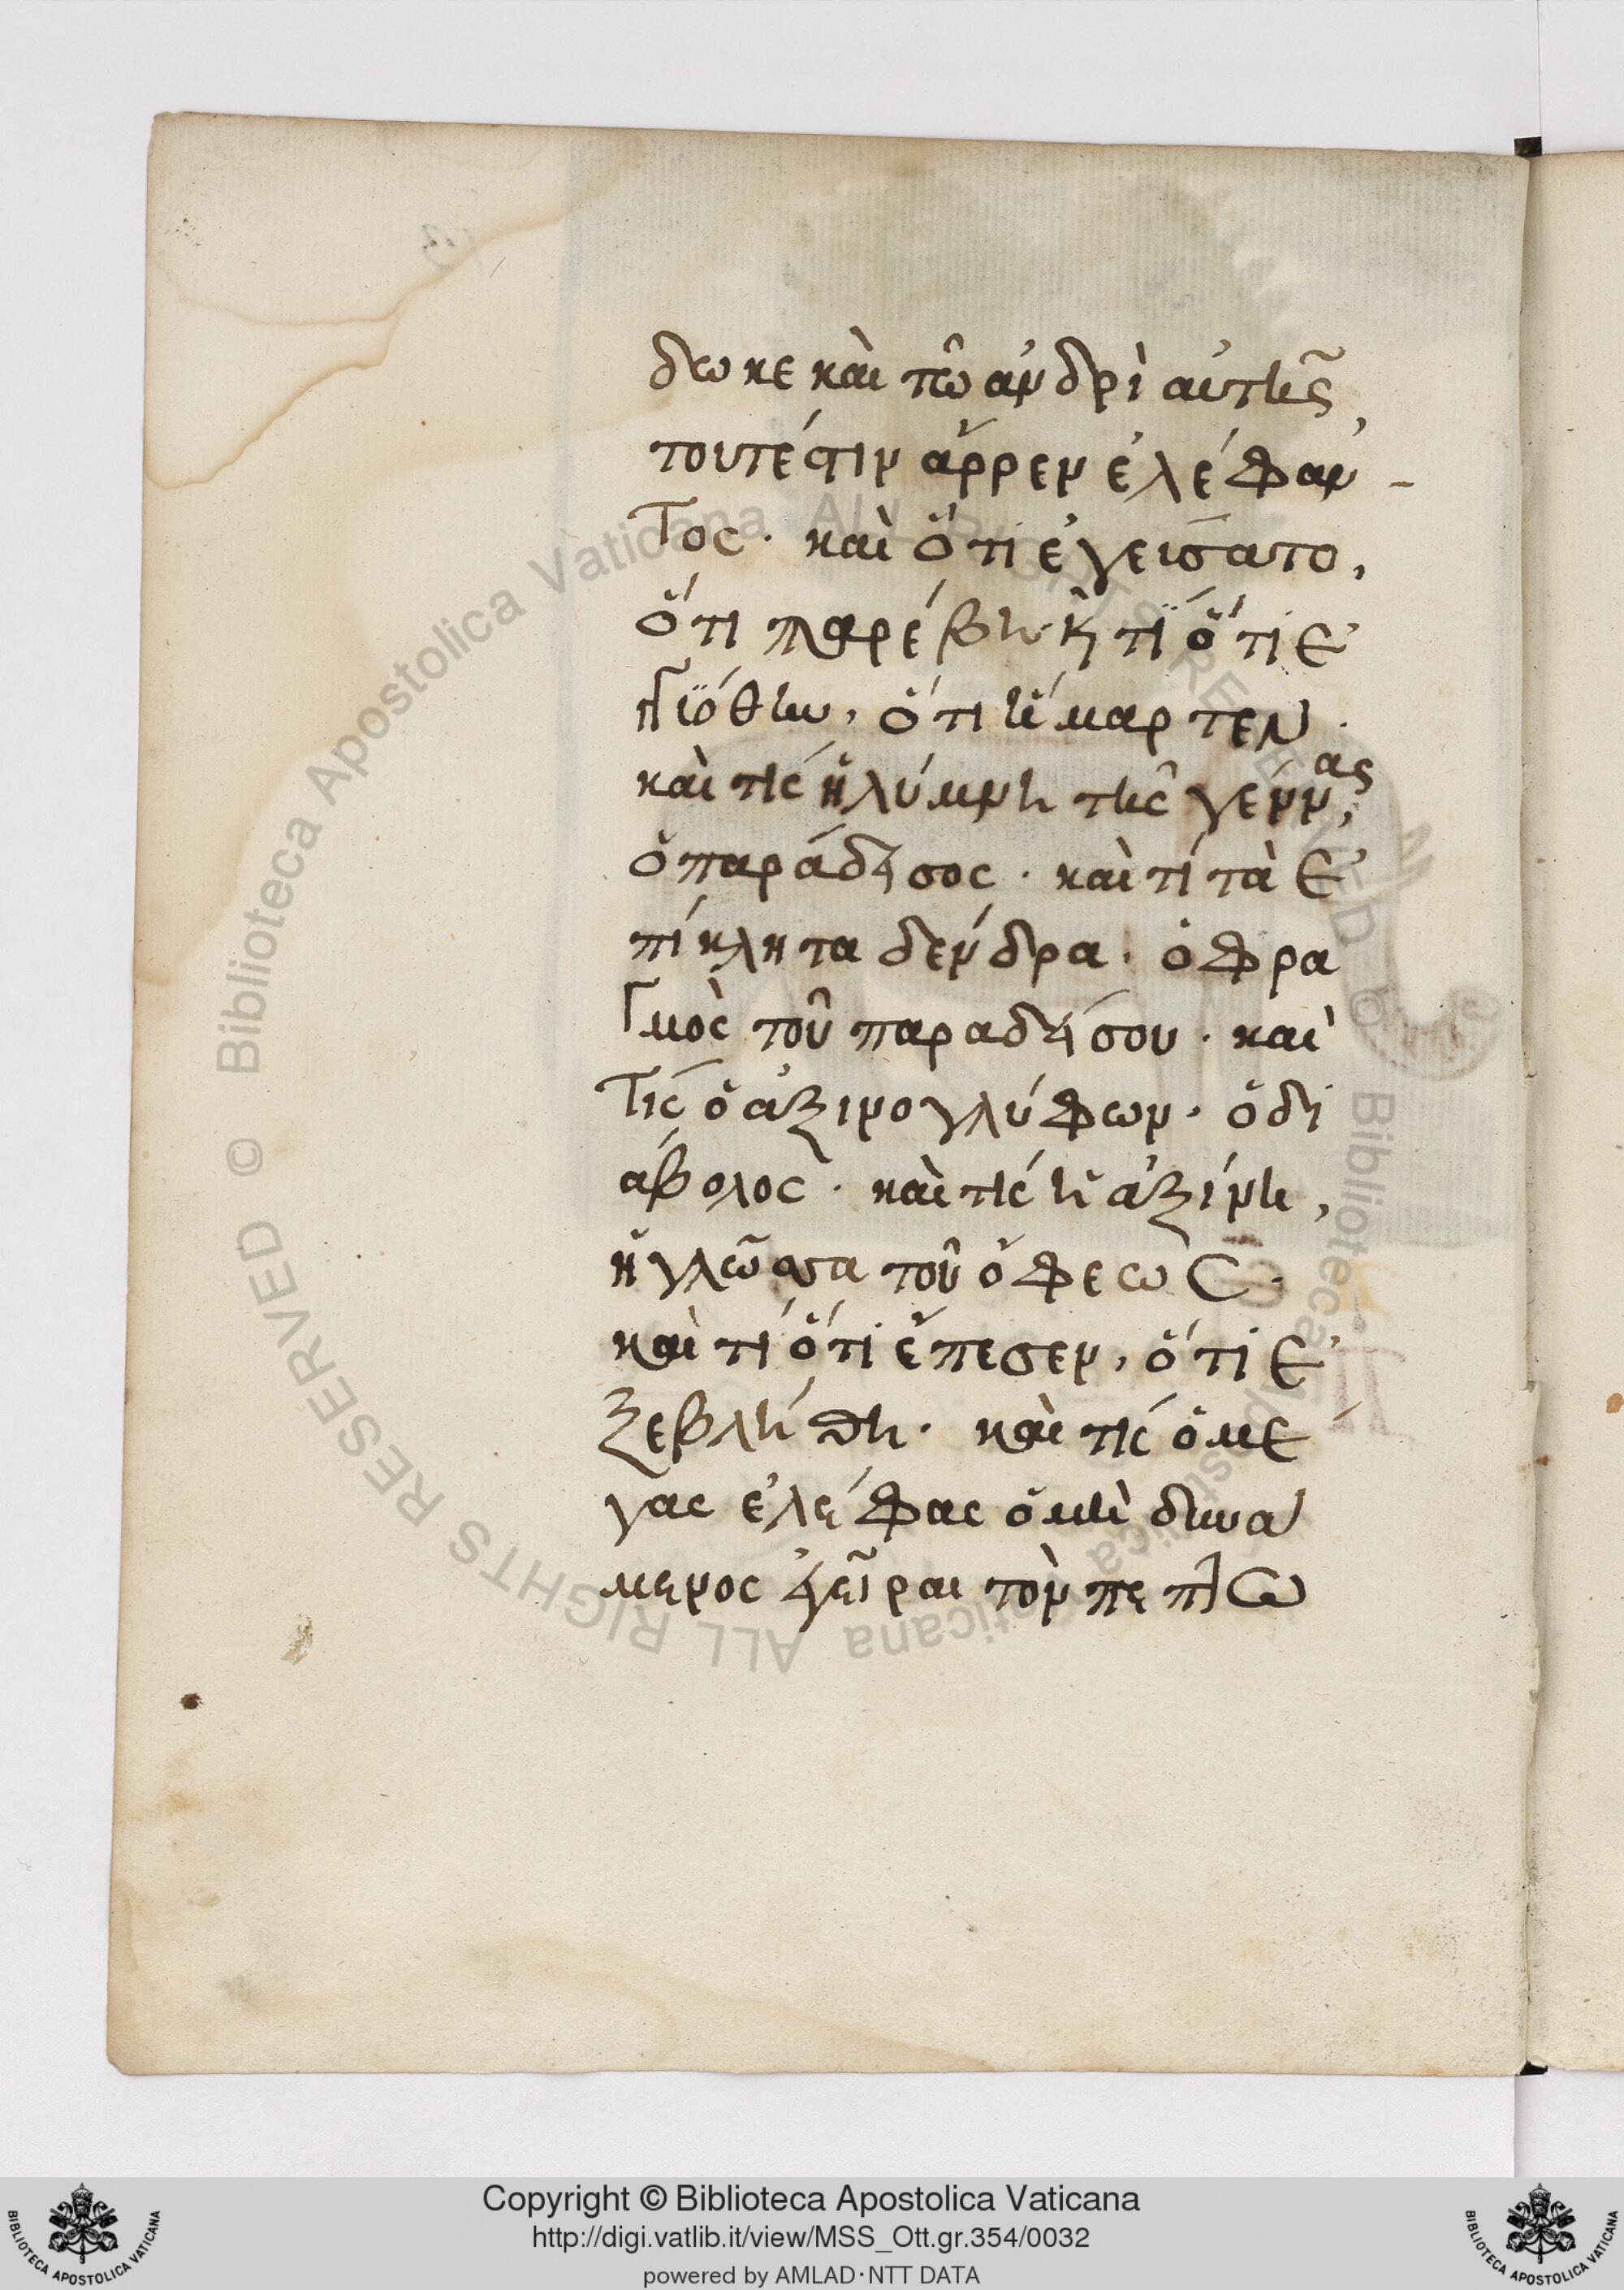 δωκε καὶ τῶ ἀνδρὶ αὐτῆς,
τουτέστιν ἄρρεν ἐλέφαν
τος. καὶ ὅτι ἐγεύσατο,
ὅτι παρέβη. κ τί ὅτι ἐ
γγιόθην, ὅτι ἥμαρτεν.
καὶ τίς ἡ λύμνη τῆς γέννας,
ὁ παράδεισος. καὶ τί τὰ ἐ
πίκλητα δένδρα. ὁ φρα
γμὸς τοῦ παραδείσου. καὶ
τίς ὁ ἀξινογλύφων. ὁ δι
άβολος. καὶ τίς ἡ ἀξίνη,
ἡ γλῶσσα τοῦ ὄφεως.
καὶ τί ὅτι ἔπεσεν, ὅτι ἐ
ξεβλήθη. καὶ τίς ὁ μέ
γας ἐλέφας ὁ μὴ δυνά
μενος ἐγεῖραι τὸν πεπτω
Copyright © Biblioteca Apostolica Vaticana
http://digi.vatlib.it/view/MSS_Ott.gr.354/0032
powered by AMLAD·NTT DATA
BIBLIOTECA APOSTOLICA VATICANA
BIBLIOTECA APOSTOLICA VATICANA
© Biblioteca Apostolica Vaticana ALL RIGHTS RESERVED
© Biblioteca Apostolica Vaticana ALL RIGHTS RESERVED